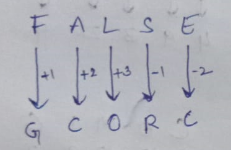 F A L S E
+1 +2 +3 -1 -2
G C O R C